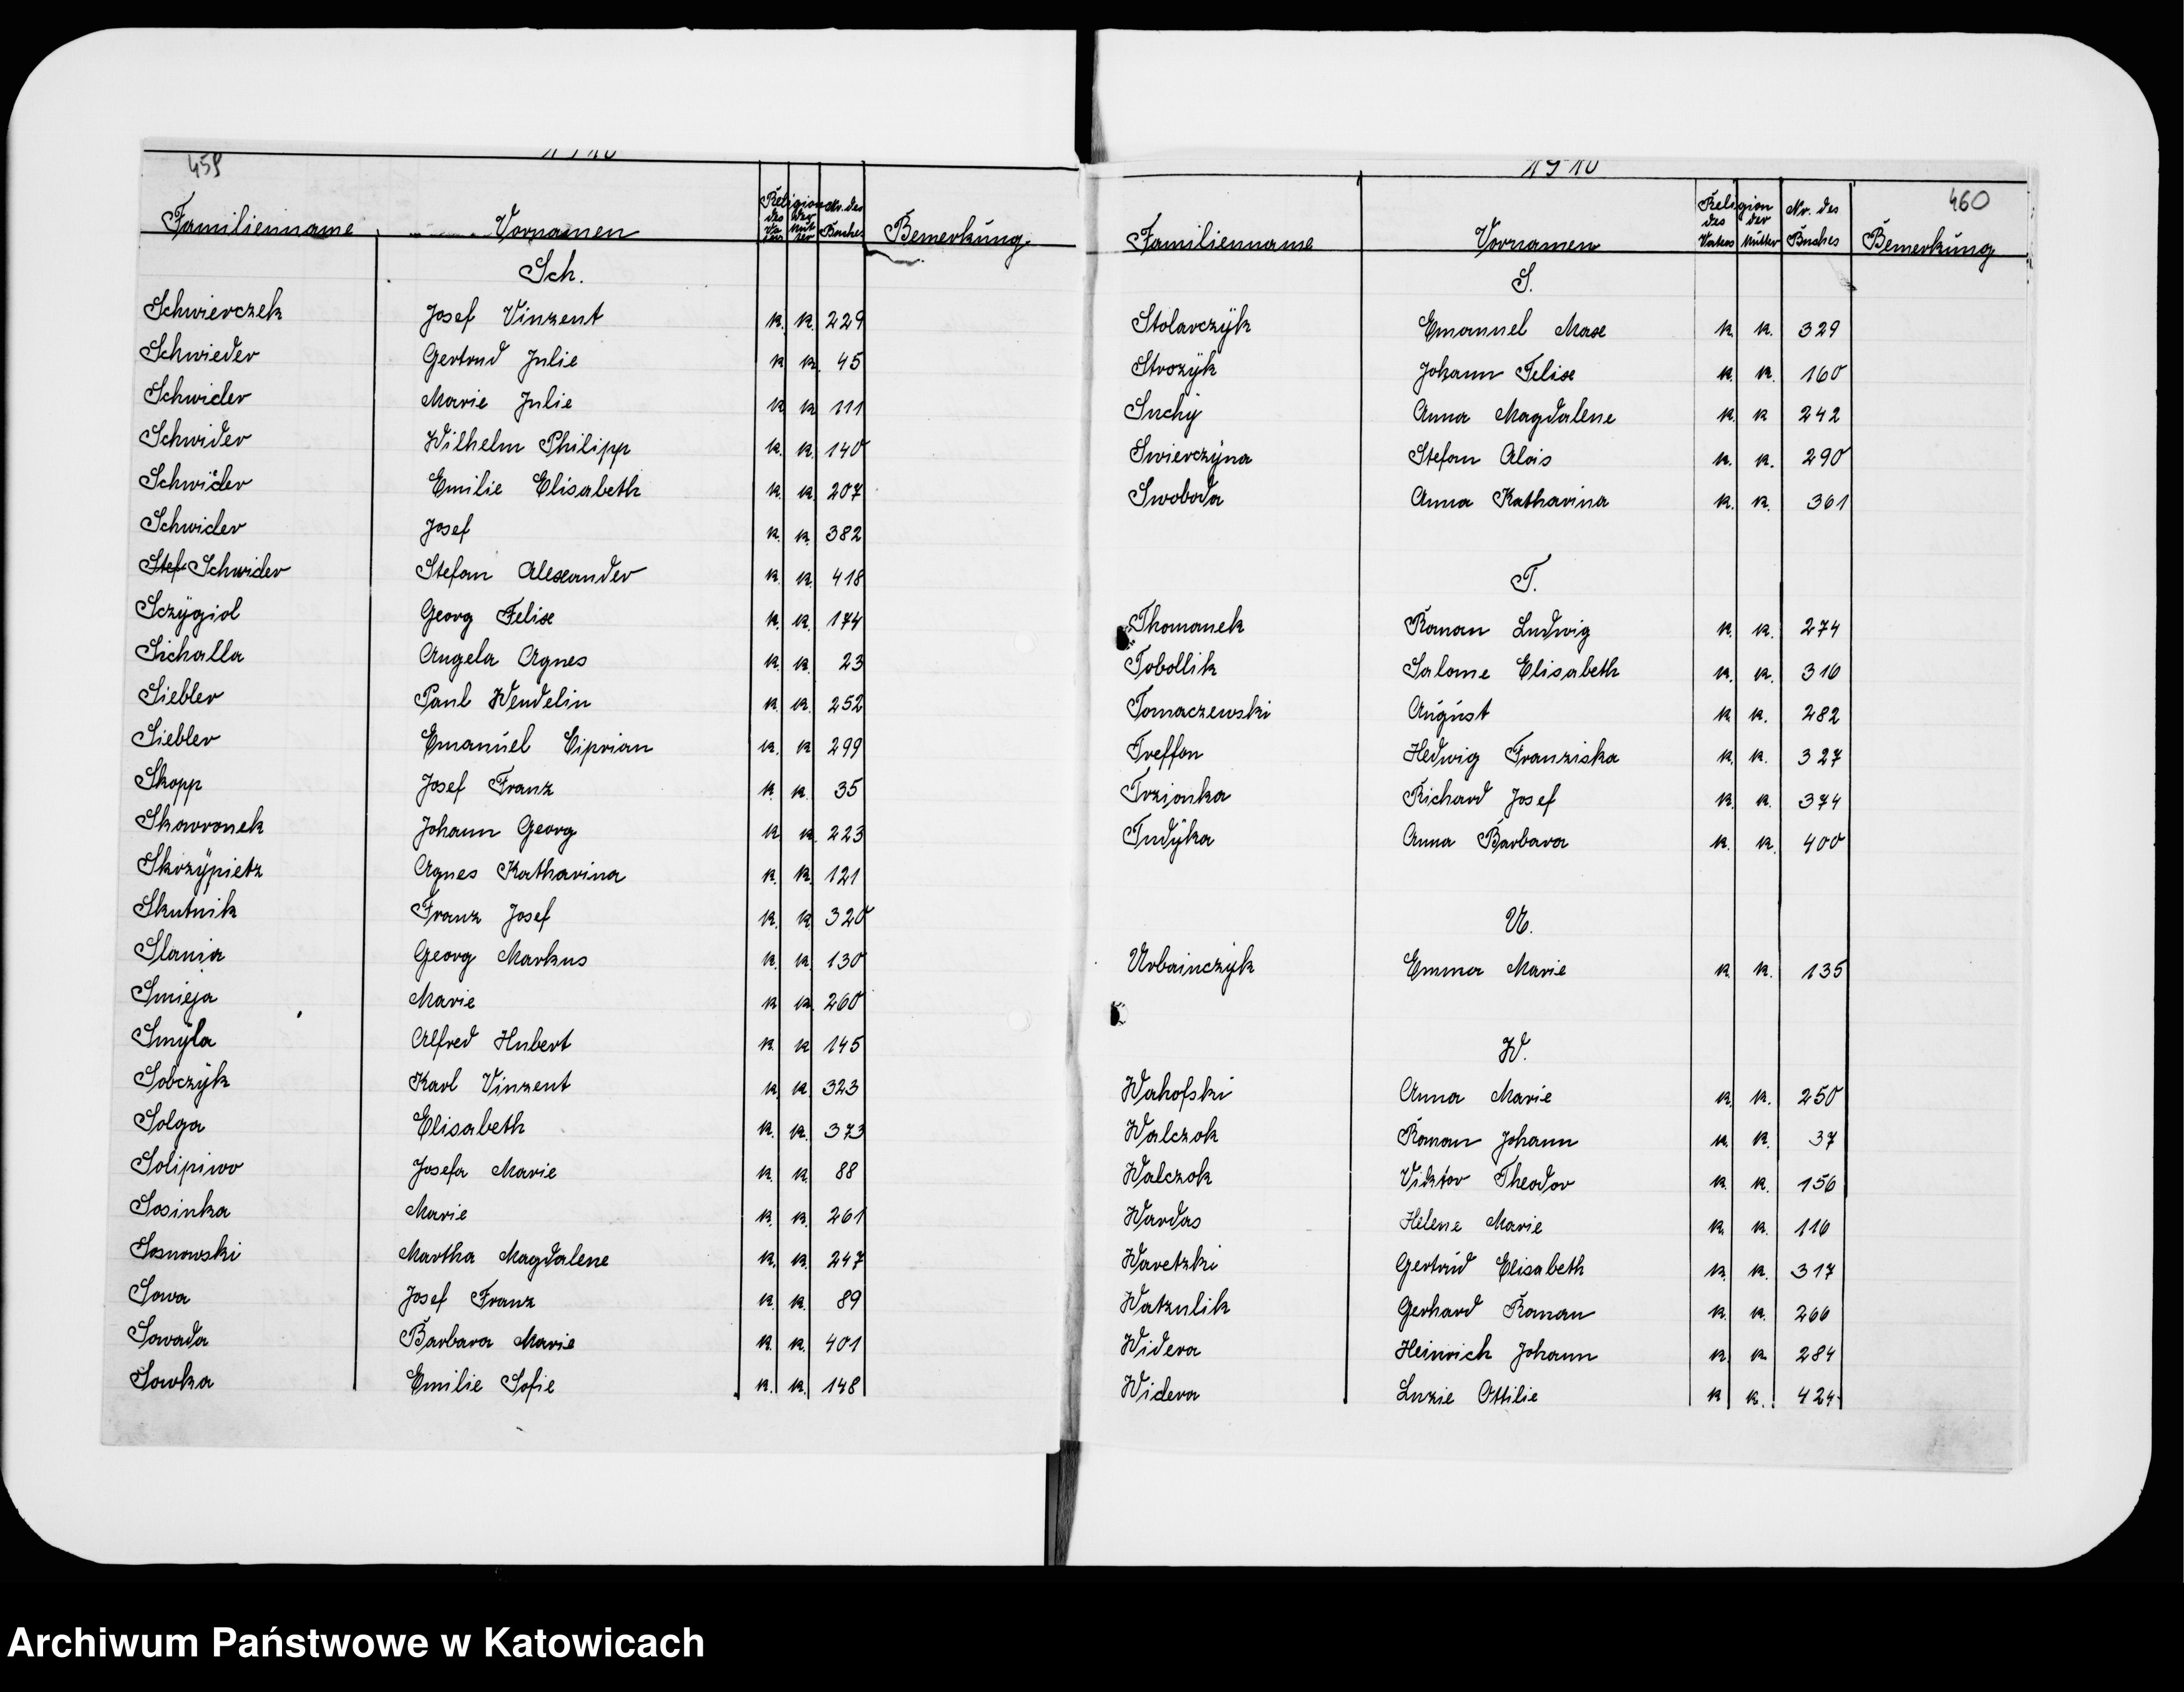 459
1910
Familienname Vornamen Religion des Vaters der Mutter Nr. des Buches Bemerkung.
Sch.
Schwierczek Josef Vinzent k. k. 229
Schwieder Gertrud Julie k k. 45
Schwider Marie Julie k k 111
Schwider Wilhelm Philipp k. k. 140
Schwider Emilie Elisabeth k. k. 207
Schwider Josef k. k. 382
Stef Schwider Stefan Alexander k. k. 418
Sczÿgiol Georg Felix k. k. 174
Sichalla Angela Agnes k. k. 23
Siebler Paul Wendelin k. k. 252
Siebler Emanuel Ciprian k. k 299
Skopp Josef Franz k. k. 35
Skowronek Johann Georg k. k. 223
Skrzÿpietz Agnes Katharina k. k. 121
Skutnik Franz Josef k. k 320
Slania Georg Markus k. k. 130
Smieja Marie k k. 260
Smÿla Alfred Hubert k. k 145
Sobczÿk Karl Vinzent k. k. 323
Solga Elisabeth k. k. 373
Solipiwo Josefa Marie k. k. 88
Sosinka Marie k. k. 261
Sosnowski Martha Magdalene k. k. 247
Sowa Josef Franz k. k. 89
Sowada Barbara Marie k. k. 401
Sowka Emilie Sofie k. k. 148
1910
460
Familienname Vornamen Religion des Vaters der Mutter Nr. des Buches Bemerkung
S.
Stolarczÿk Emanuel Max k. k. 329
Strozÿk Johann Felix k. k. 160
Suchÿ Anna Magdalene k. k 242
Swierczÿna Stefan Alois k. k. 290
Swoboda Anna Katharina k. k. 361
T.
Thomanek Roman Ludwig k. k. 274
Tobollik Salome Elisabeth k. k. 316
Tomaczewski August k k. 282
Treffon Hedwig Franziska k. k. 327
Trzionka Richard Josef k. k. 374
Tudÿka Anna Barbara k. k. 400
U.
Urbainczÿk Emma Marie k. k. 135
W.
Wahofski Anna Marie k. k. 250
Walczok Roman Johann k. k. 37
Walczok Viktor Theodor k. k. 156
Wardas Helene Marie k. k. 116
Waretzki Gertrud Elisabeth k. k. 317
Watzulik Gerhard Roman k. k. 266
Widera Heinrich Johann k. k 284
Widera Luzie Ottilie k k. 424
Archiwum Państwowe w Katowicach